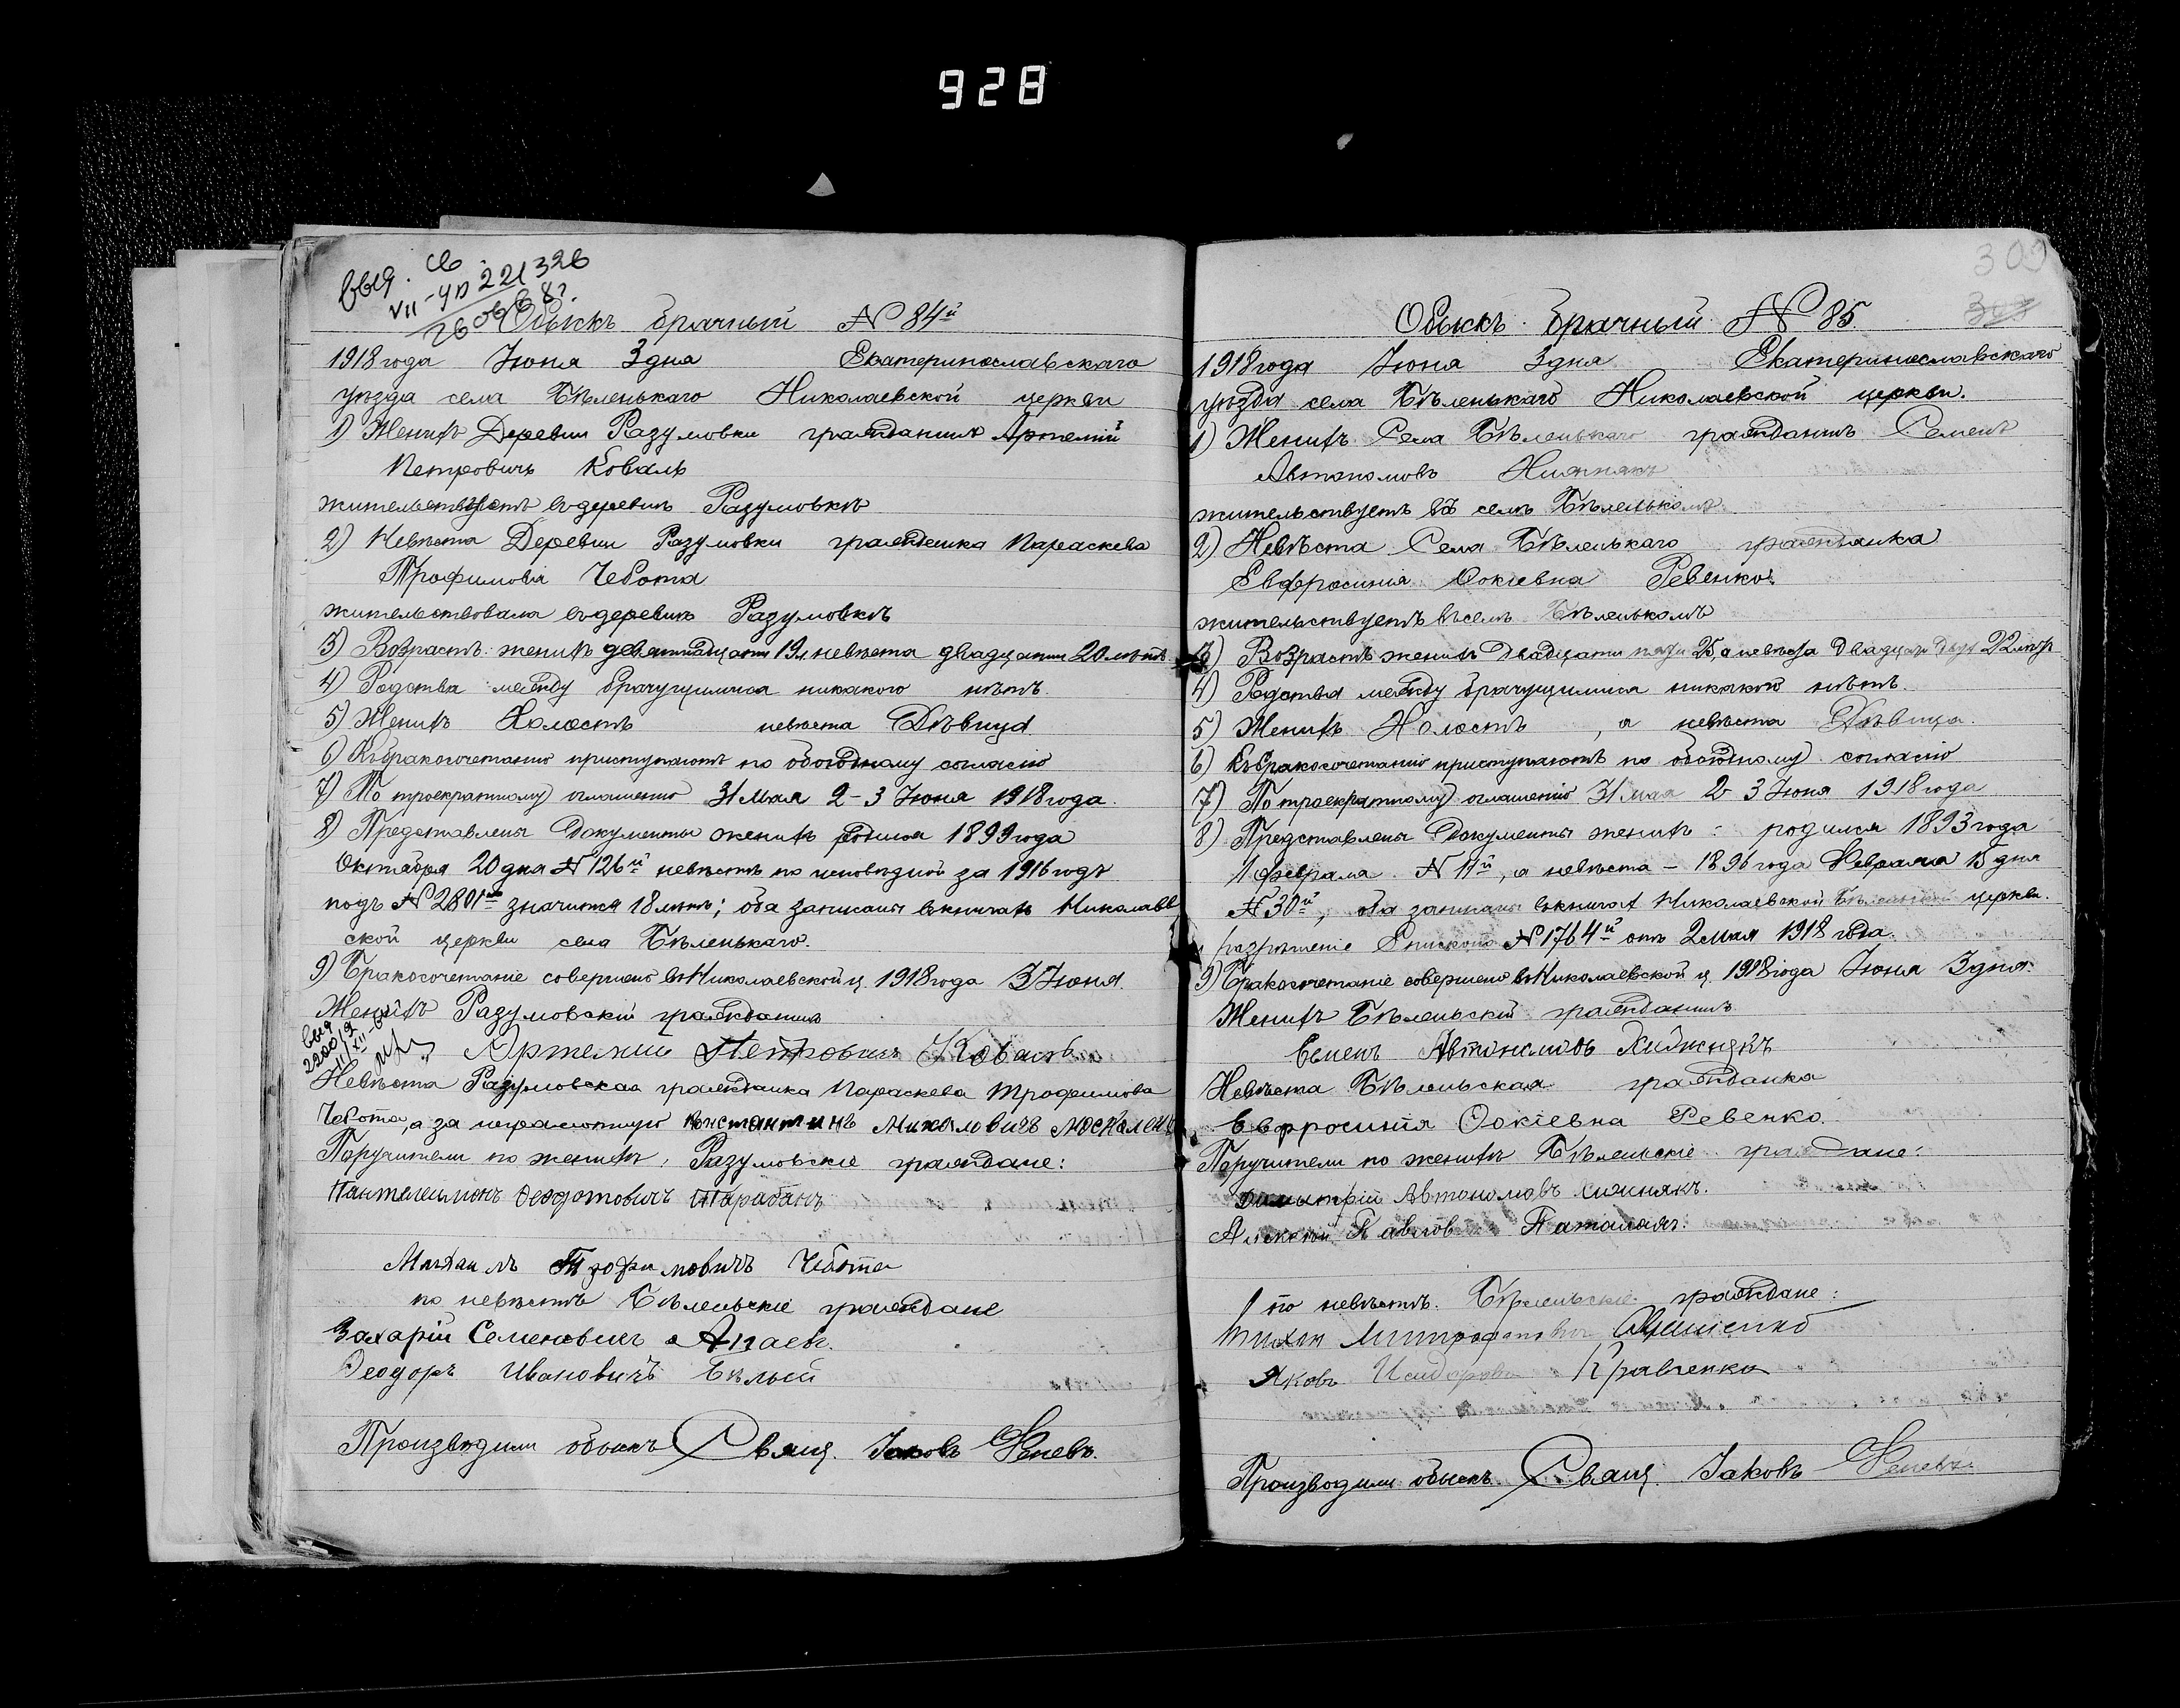 928
выд. св.
VII-ЯП 221326
26 об 68 г.
Обыскъ брачный № 84й
1918 года Iюня 3 дня Екатеринославскаго
уѣзда села Бѣленькаго Николаевской церкви
1) Женихъ Деревни Разумовки гражданинъ Артемiй
Петровичъ Коваль
жительствуетъ въ деревнѣ Разумовкѣ
2) Невѣста Деревни Разумовки гражданка Параскева
Трофимовa Чебота
жительствовала въ деревнѣ Разумовкѣ
3) Возрастъ: женихъ девятнадцати 19 л. невѣста двадцати 20 лѣтъ
4) Родства между брачущимися никакого нѣтъ.
5) Женихъ Холостъ невѣста Дѣвица
6) Къ бракосочетанiю приступаютъ по обоюдному согласiю
7) По троекратному оглашенiю 31 Мая 2-3 Iюня 1918 года.
8) Представлены Документы женихъ родился 1899 года
Октября 20 дня № 126й невѣстѣ по исповѣдной за 1916 годъ
подъ № 2801 значится 18 лѣтъ; оба записаны въ книгахъ Николаев
ской церкви села Бѣленькаго.
9) Бракосочетанiе совершено въ Николаевской ц. 1918 года 3 Iюня.
Женихъ Разумовскiй гражданинъ
выд
2200/9
Артемий Петровичъ Коваль
Невѣста Разумовская гражданка Параскева Трофимова
Чебота, а за неграмотную Константинъ Михайловичъ Москалец
Поручители по женихѣ: Разумовскiе граждане:
Пантелеимонъ Феодотовичъ Тарабанъ
Михаилъ Трофимовичъ Чебота
по невѣстѣ Бѣленьскiе граждане
Захарiй Семеновичъ
Феодоръ Ивановичъ Бѣлый
Производили обыскъ Свящ. Iаковъ
309
Обыскъ брачный № 85
1918 года Iюня 3 дня Екатеринославскаго
уѣзда села Бѣленькаго Николаевской церкви.
1) Женихъ Села Бѣленькаго гражданинъ Семенъ
Автономовъ Хижнякъ
жительствуетъ въ селѣ Бѣленькомъ
2) Невѣста Села Бѣленькаго гражданка
Евфросинiя Фокiевна Ревенко.
жительствуетъ въ селѣ Бѣленькомъ
3) Возрастъ женихъ Двадцати пяти 25, а невѣста Двадцати двух 22 лѣт
4) Родства между брачущимися никакого нѣтъ.
5) Женихъ Холостъ, а невѣста Дѣвица.
6) Къ бракосочетанiю приступаютъ по обоюдному согласiю
7) По троекратному оглашенiю 31 мая 2-3 Iюня 1918 года
8) Представлены Документы женихъ: родился 1893 года
1 февраля № 11й, а невѣста – 1896 года Февраля 15 дня
№ 30й, оба записаны въ книгах Николаевской церкви.
разрѣшенiе Епископа № 1764й отъ 2 мая 1918 года.
9) Бракосочетанiе совершено въ Николаевской ц. 1918 года Iюня 3 дня.
Женихъ Бѣленьскiй гражданинъ
Семенъ Автономовъ Хижнякъ
Невѣста Бѣленьская гражданка
Евфросинiя Фокiевна Ревенко.
Поручители по женихѣ Бѣленьскiе граждане:
Димитрiй Автономовъ Хижнякъ.
Алексѣй Павлов Паталахъ.
по невѣстѣ. Бѣленьскiе граждане:
Тихон Митрофанович
Яковъ Исидоровъ Кравченко
Производили обыскъ. Свящ. Iаковъ